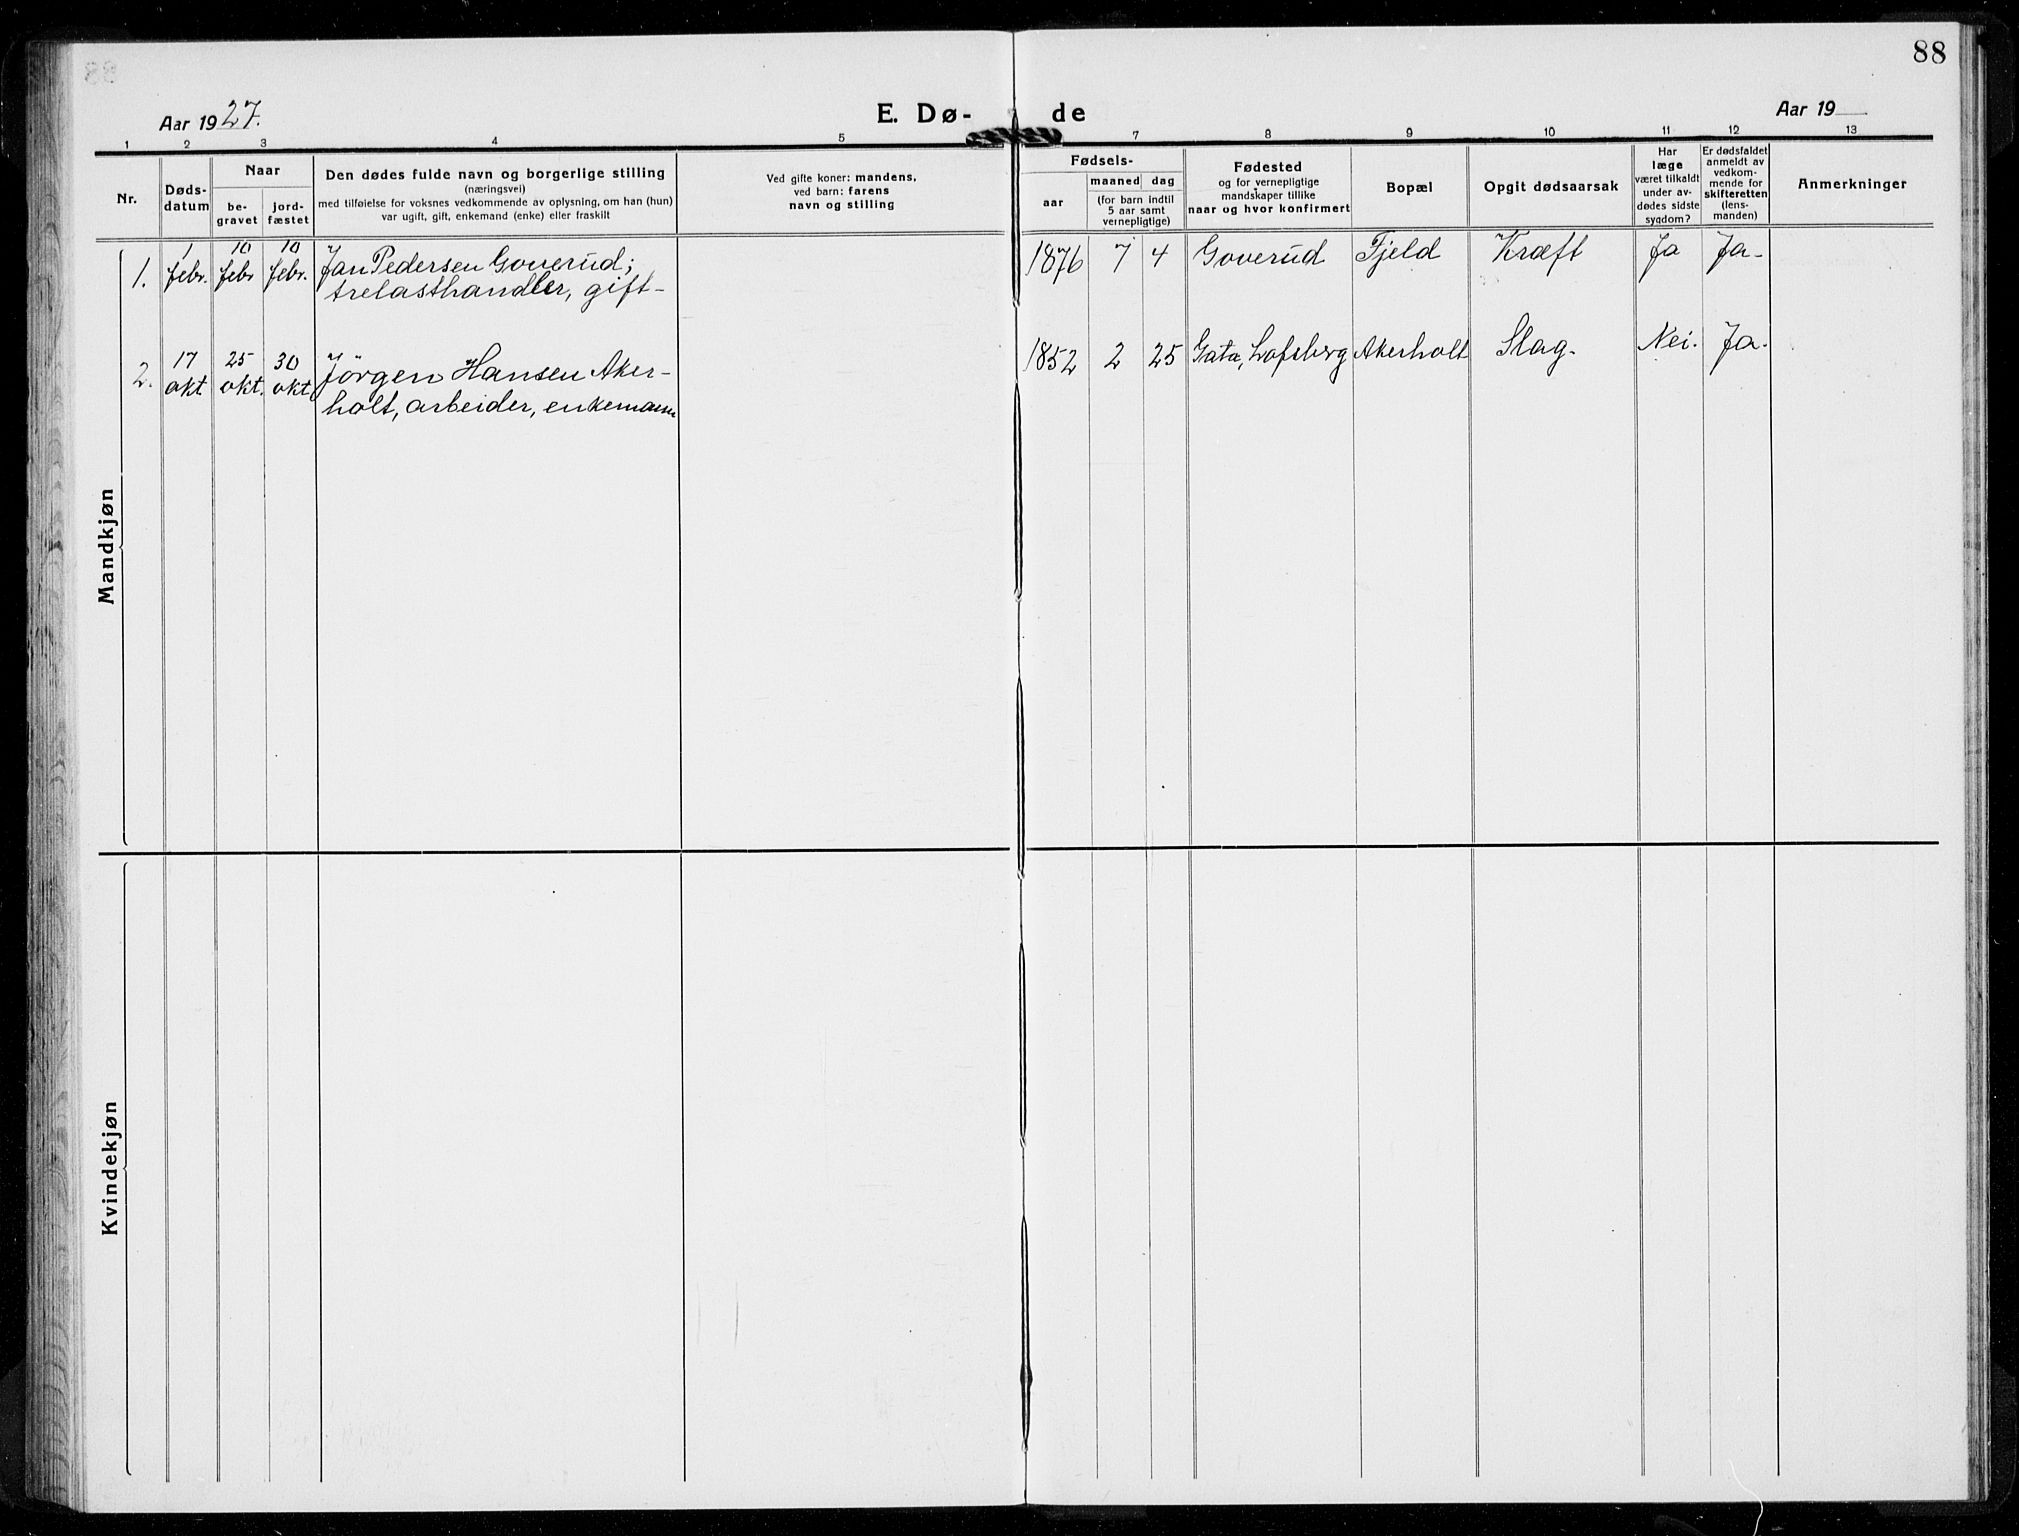 88
Aar 1927.
E. Dø-
de
Aar 19
1 2 3 4 5 7 8 9 10 11 12 13
Nr.
Døds-
datum
Naar
be-
gravet
jord-
fæstet
Den dødes fulde navn og borgerlige stilling
(næringsvei)
med tilføielse for voksnes vedkommende av oplysning, om han (hun)
var ugift, gift, enkemand (enke) eller fraskilt
Ved gifte koner: mandens,
ved barn: farens
navn og stilling
Fødsels-
aar
maaned dag
(for barn indtil
5 aar samt
vernepligtige)
Fødested
og for vernepligtige
mandskaper tillike
naar og hvor konfirmert
Bopæl
Opgit dødsaarsak
Har
læge
været tilkaldt
under av-
dødes sidste
sygdom?
Er dødsfaldet
anmeldt av
vedkom-
mende for
skifteretten
(lens-
manden)
Anmerkninger
Mandkjøn
1 10 10
1. febr. febr febr. Jan Pedersen Goverud;
trelasthandler, gift-
1876 7 4 Goverud Fjeld Kræft Ja Ja-
17 25 30
2. okt. okt. okt. Jørgen Hansen Aker-
holt, arbeider, enkemann
1852 2 25 Gata, Lofsberg Akerholt Slag. Nei. Ja.
Kvindekjøn